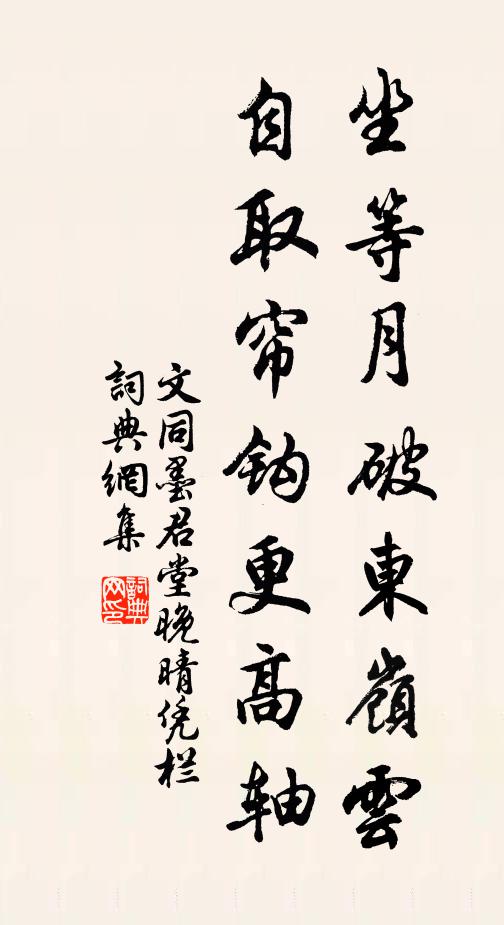 坐等月破東嶺雲
自取帘鈎更高轴
文同墨君堂晚晴凭栏
詞典網集
詞典网印